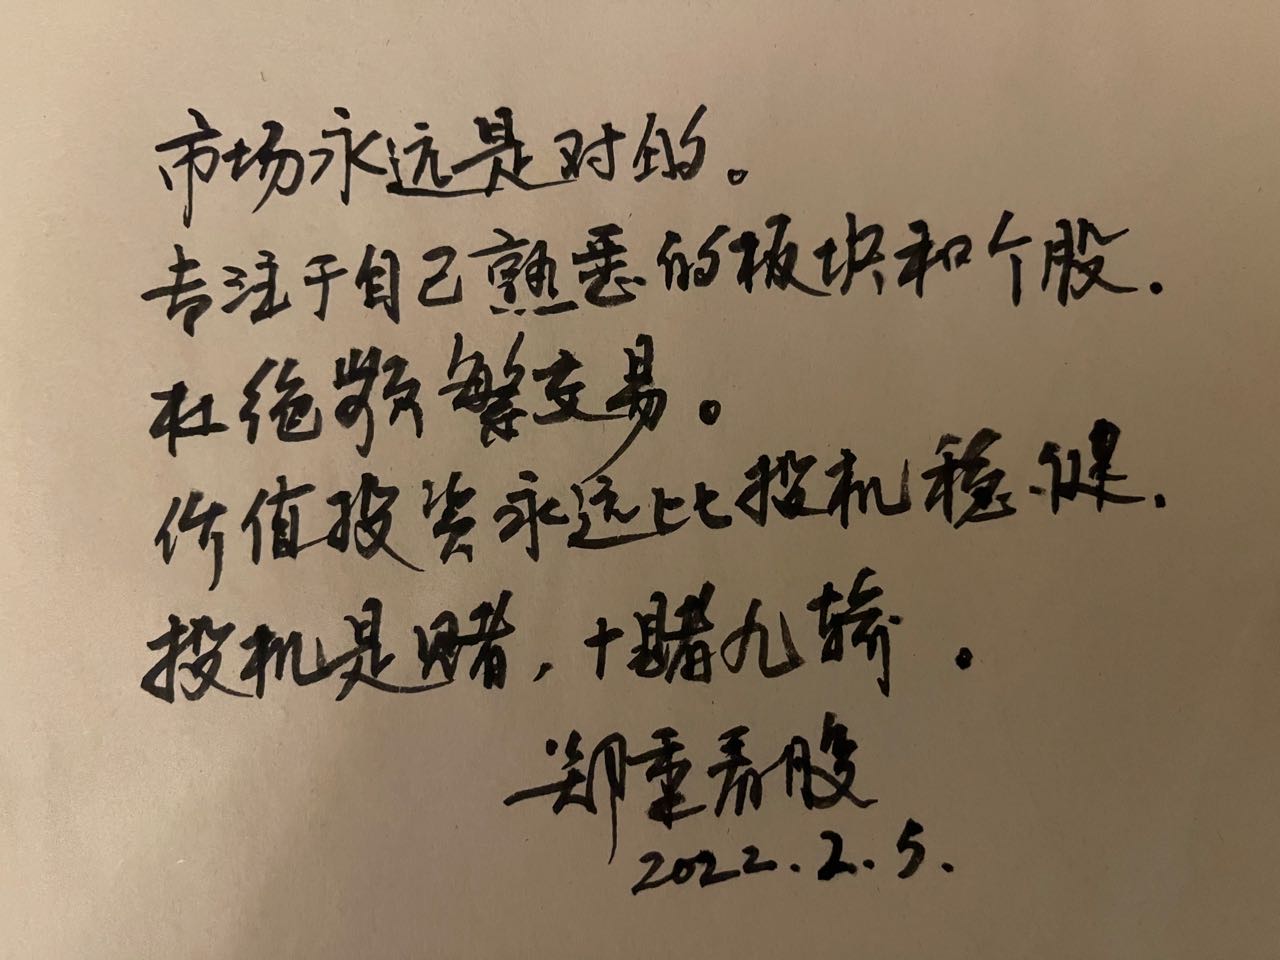 市场永远是对的。
专注于自己熟悉的板块和个股.
杜绝频繁交易。
价值投资永远比投机稳健.
投机是赌,十赌九输。
郑重看股
2022.2.5.